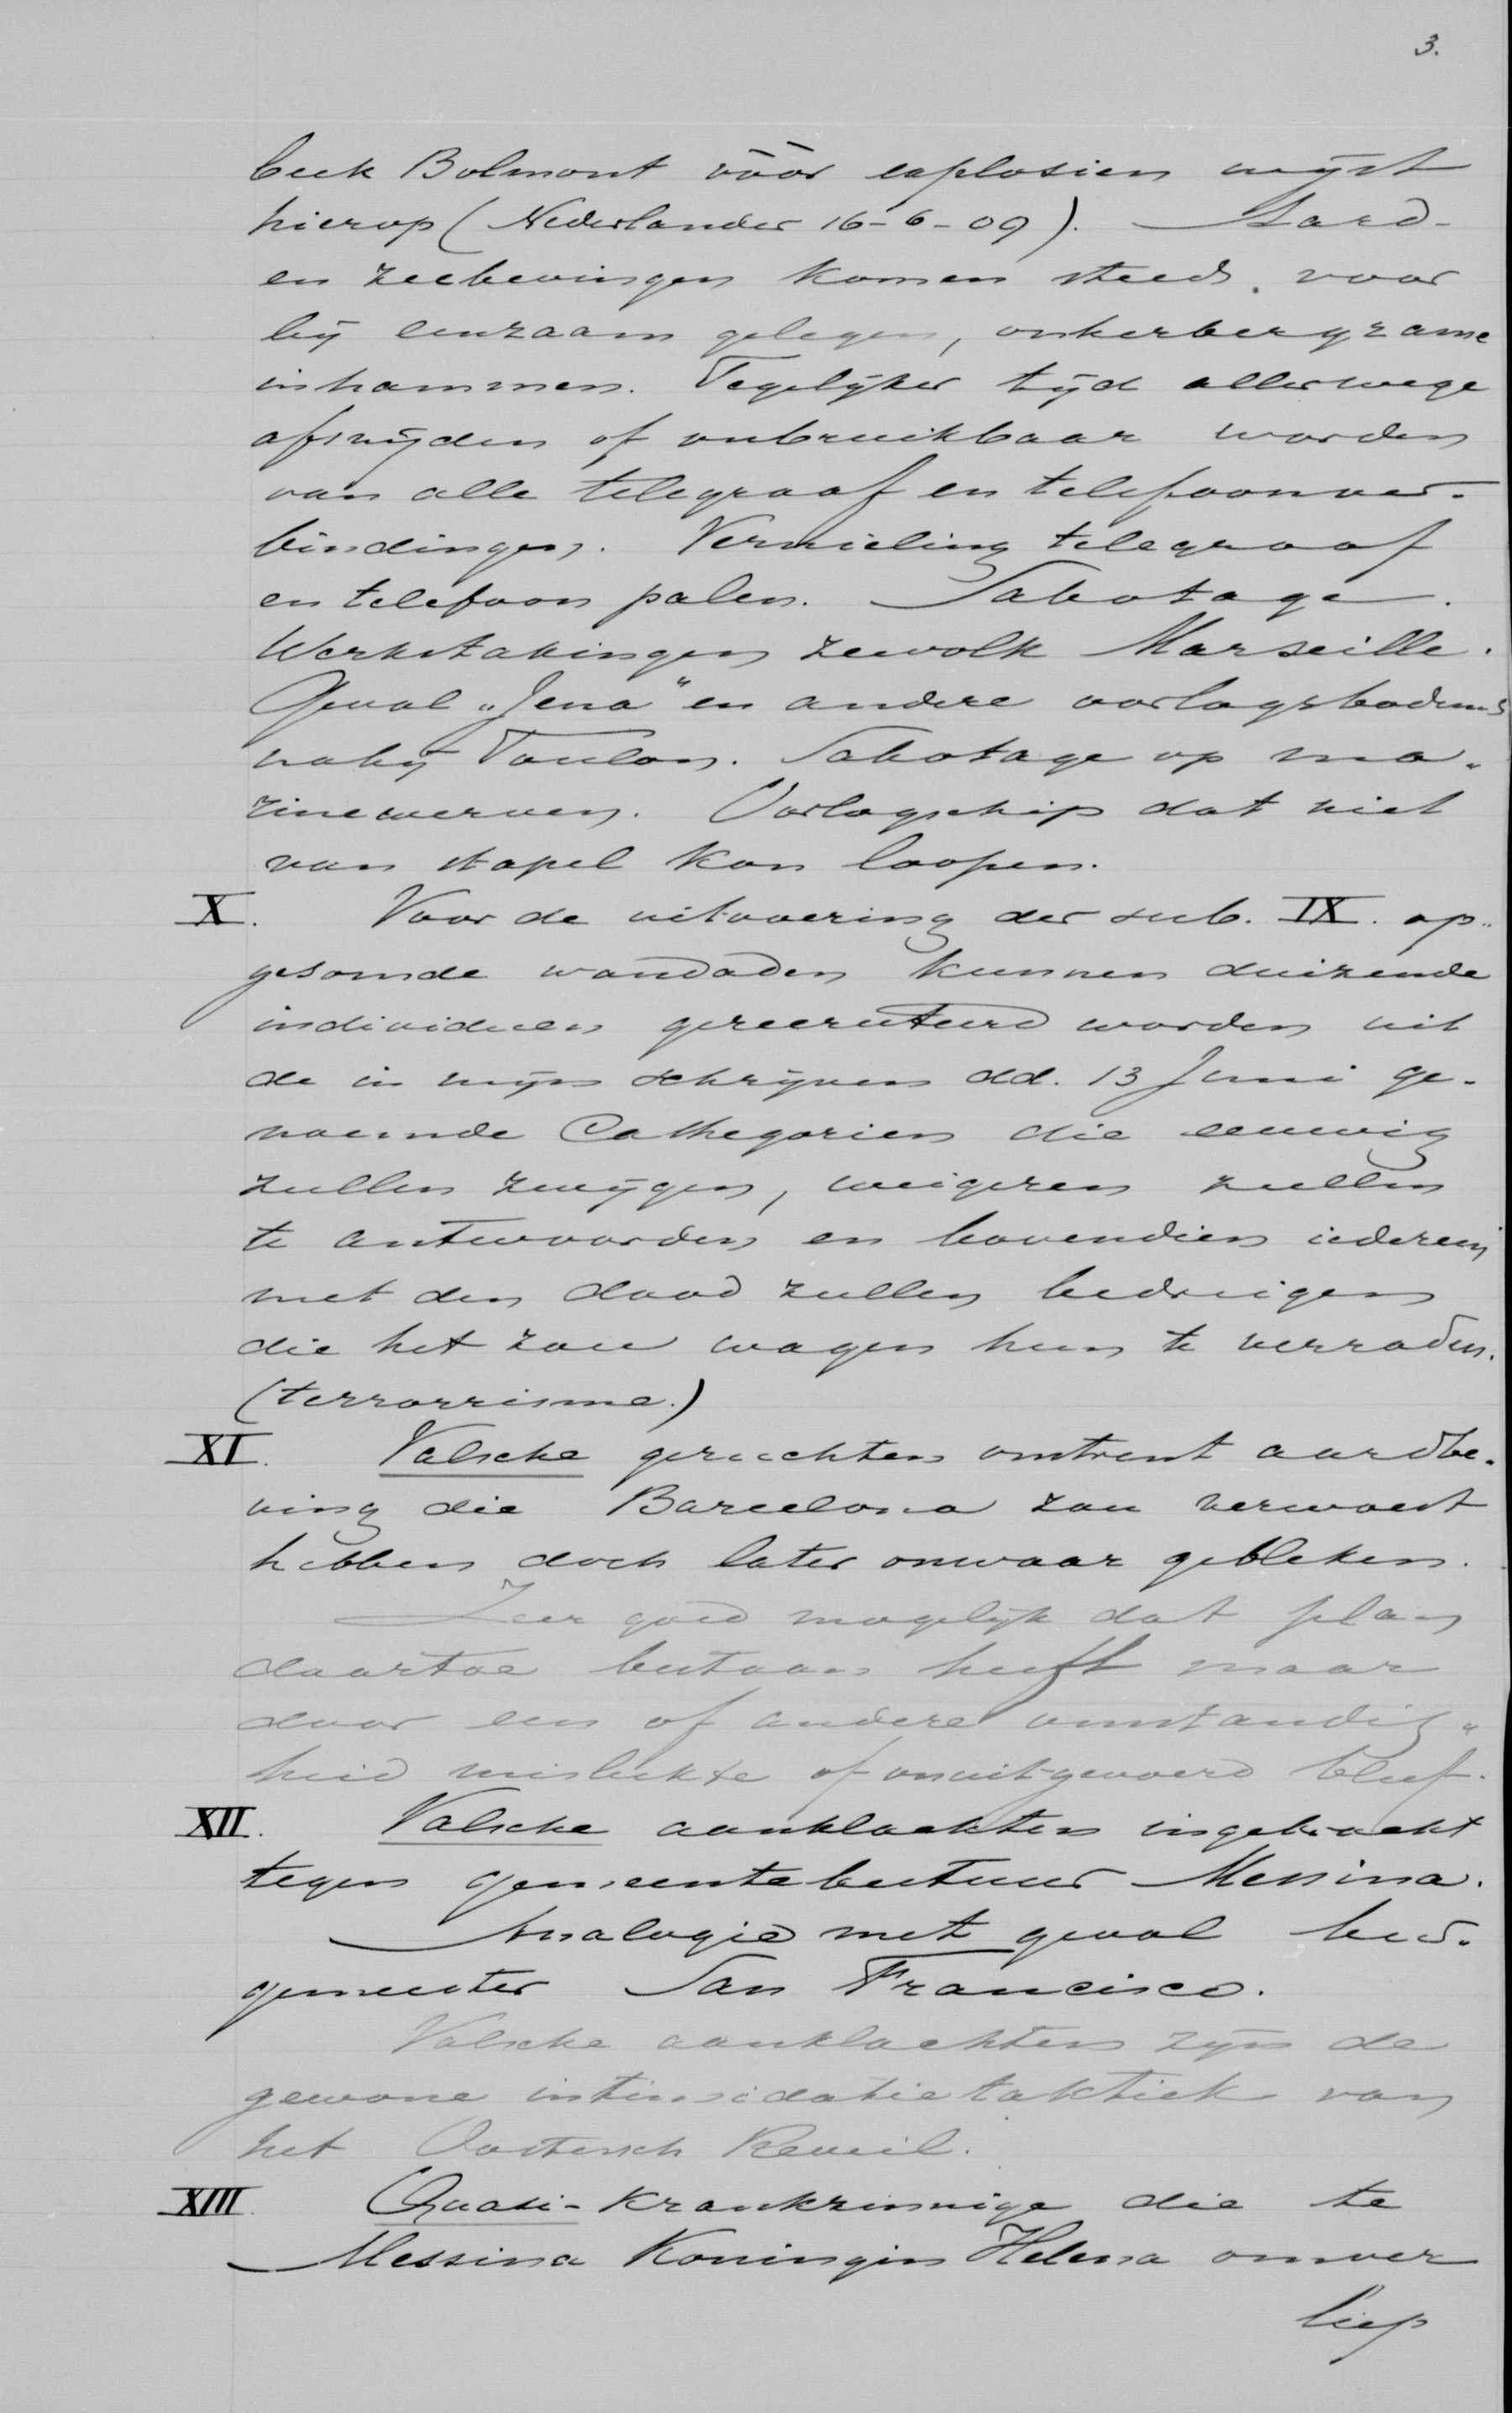 3.
beek Bolmont vóór explosien wyst
hierop (Nederlander 16-6-09). Aard-
en zeebevingen komen steeds voor
by eenzaam gelegen, onherbergzame
inhammen. Tegelyker tyd allerwege
afsnyden of onbruikbaar worden
van alle telegraaf en telefoonver-
bindingen. Vernieling telegraaf
en telefoon palen. Sabotage.
Werkstakingen zeevolk Marseille.
Geval „Jena" en andere oorlogsbodems
naby Toulon. Sabotage op ma-
rinewerven. Oorlogschip dat niet
van stapel kon loopen.
X. Voor de uitvoering der sub. IX. op-
gesomde wandaden kunnen duizende
individuen gerecruteerd worden uit
de in myn schryven dd. 13 Juni ge-
noemde Cathegorien die eeuwig
zullen zwygen, weigeren zullen
te antwoorden en bovendien iedereen
met den dood zullen bedreigen
die het zou wagen hun te verraden.
(terrorrisme.)
XI. Valsche geruchten omtrent aardbe-
ving die Barcelona zou verwoest
hebben doch later onwaar gebleken.
Zeer goed mogelyk dat plan
daartoe bestaan heeft maar
door een of andere omstandig-
heid mislukte of onuitgevoerd bleef.
XII. Valsche aanklachten ingebracht
tegen gemeentebestuur Messina.
Analogie met geval bur-
gemeester San Francisco.
Valsche aanklachten zyn de
gewone intimidatietaktiek van
het Oostersch Reveil.
XIII. Quasi-krankzinnige die te
Messina Koningin Helena omver
liep